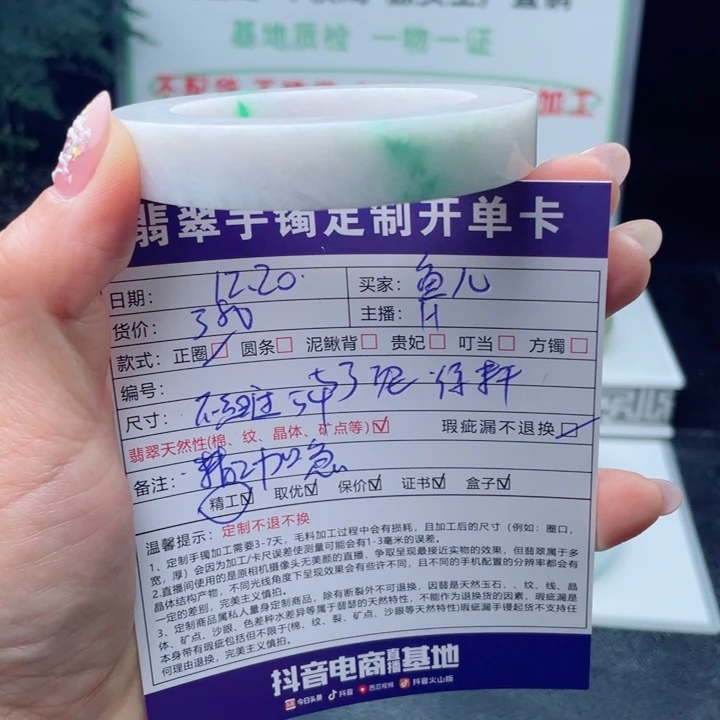 基地质检 一物一证
加工
翡翠手镯定制开单卡
日期: 12.20. 买家: 鱼儿
货价: 主播:
款式: 正圈 圆条 泥鳅背 贵妃 叮当 方镯
编号:
尺寸: 54
翡翠天然性(棉、纹、晶体、矿点等) 瑕疵漏不退换
备注: 精工加急
精工 取优 保价 证书 盒子
温馨提示: 定制不退不换
1、定制手镯加工需要3-7天，毛料加工过程中会有损耗，且加工后的尺寸（例如：圈口，
宽，厚）会因为加工/卡尺误差使测量可能会有1-3毫米的误差。
2.直播间使用的是原相机摄像头无美颜的直播，争取呈现最接近实物的效果，但翡翠属于多
晶体结构产物，不同光线角度下呈现效果会有些许不同，且不同的手机配置的分辨率都会有
一定的差别，完美主义慎拍。
3、定制商品属私人量身定制商品，除有断裂外不可退换，因翡是天然玉石，、纹、线、晶
体、矿点、沙眼、色差种水差异等属于翡瑟的天然特性，不能作为退换货的因素，瑕疵漏是
本身带有瑕疵包括但不限于(棉、纹、裂、矿点、沙眼等天然特性)瑕疵漏手镯起货不支持任
何理由退换，完美主义慎拍。
抖音电商直播基地
今日头条 抖音 西瓜视频 抖音火山版